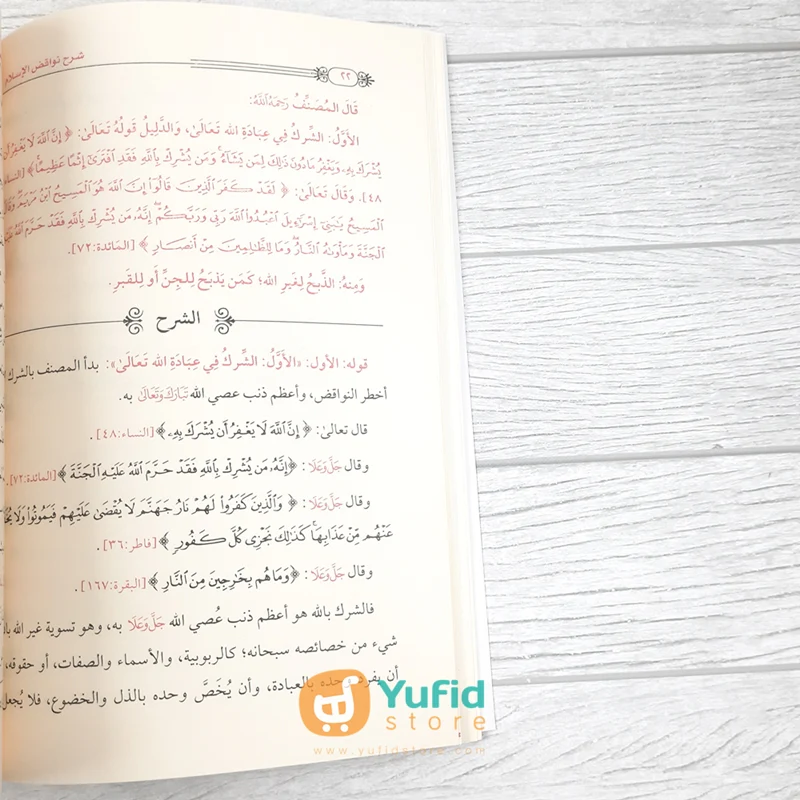 شرح نواقض الإسلام
٢٢
قَالَ المُصَنِّفُ رَحِمَهُ اللَّهُ:
الأَوَّلُ: الشِّركُ فِي عِبَادَةِ الله تَعَالَىٰ، وَالدَّلِيلُ قَولُهُ تَعَالَىٰ: ﴿ إِنَّ ٱللَّهَ لَا يَغۡفِرُ أَن
يُشۡرَكَ بِهِۦ وَيَغۡفِرُ مَا دُونَ ذَٰلِكَ لِمَن يَشَآءُۚ وَمَن يُشۡرِكۡ بِٱللَّهِ فَقَدِ ٱفۡتَرَىٰٓ إِثۡمًا عَظِيمًا﴾ [النساء:
٤٨]. وَقَالَ تَعَالَىٰ: ﴿ لَقَدۡ كَفَرَ ٱلَّذِينَ قَالُوٓاْ إِنَّ ٱللَّهَ هُوَ ٱلۡمَسِيحُ ٱبۡنُ مَرۡيَمَۖ وَقَالَ
ٱلۡمَسِيحُ يَٰبَنِيٓ إِسۡرَٰٓءِيلَ ٱعۡبُدُواْ ٱللَّهَ رَبِّي وَرَبَّكُمۡۖ إِنَّهُۥ مَن يُشۡرِكۡ بِٱللَّهِ فَقَدۡ حَرَّمَ ٱللَّهُ عَلَيۡهِ
ٱلۡجَنَّةَ وَمَأۡوَىٰهُ ٱلنَّارُۖ وَمَا لِلظَّٰلِمِينَ مِنۡ أَنصَارٍ ﴾ [المَائدة:٧٢].
وَمِنهُ: الذَّبحُ لِغَيرِ الله؛ كَمَن يَذبَحُ لِلجِنِّ أَو لِلقَبرِ.
الشرح
قوله: الأول: «الأَوَّلُ: الشِّركُ فِي عِبَادَةِ الله تَعَالَىٰ»: بدأ المصنف بالشرك
أخطر النواقض، وأعظم ذنب عصي الله تَبَارَكَ وَتَعَالَىٰ به.
قال تعالىٰ: ﴿ إِنَّ ٱللَّهَ لَا يَغۡفِرُ أَن يُشۡرَكَ بِهِۦ ﴾ [النساء:٤٨].
وقال جَلَّ وَعَلَا: ﴿إِنَّهُۥ مَن يُشۡرِكۡ بِٱللَّهِ فَقَدۡ حَرَّمَ ٱللَّهُ عَلَيۡهِ ٱلۡجَنَّةَ ﴾ [المائدة:٧٢].
وقال جَلَّ وَعَلَا: ﴿ وَٱلَّذِينَ كَفَرُواْ لَهُمۡ نَارُ جَهَنَّمَ لَا يُقۡضَىٰ عَلَيۡهِمۡ فَيَمُوتُواْ وَلَا
عَنۡهُم مِّنۡ عَذَابِهَاۚ كَذَٰلِكَ نَجۡزِي كُلَّ كَفُورٍ ﴾ [فاطر:٣٦].
وقال جَلَّ وَعَلَا: ﴿وَمَا هُم بِخَٰرِجِينَ مِنَ ٱلنَّارِ ﴾ [البقرة:١٦٧].
فالشرك بالله هو أعظم ذنب عُصي الله جَلَّ وَعَلَا به، وهو تسوية غير الله
شيء من خصائصه سبحانه؛ كالربوبية، والأسماء والصفات، أو حقوقه،
أن يفرد وحده بالعبادة، وأن يُخَصَّ وحده بالذل والخضوع، فلا يُجعل
Yufid
store
www.yufidstore.com